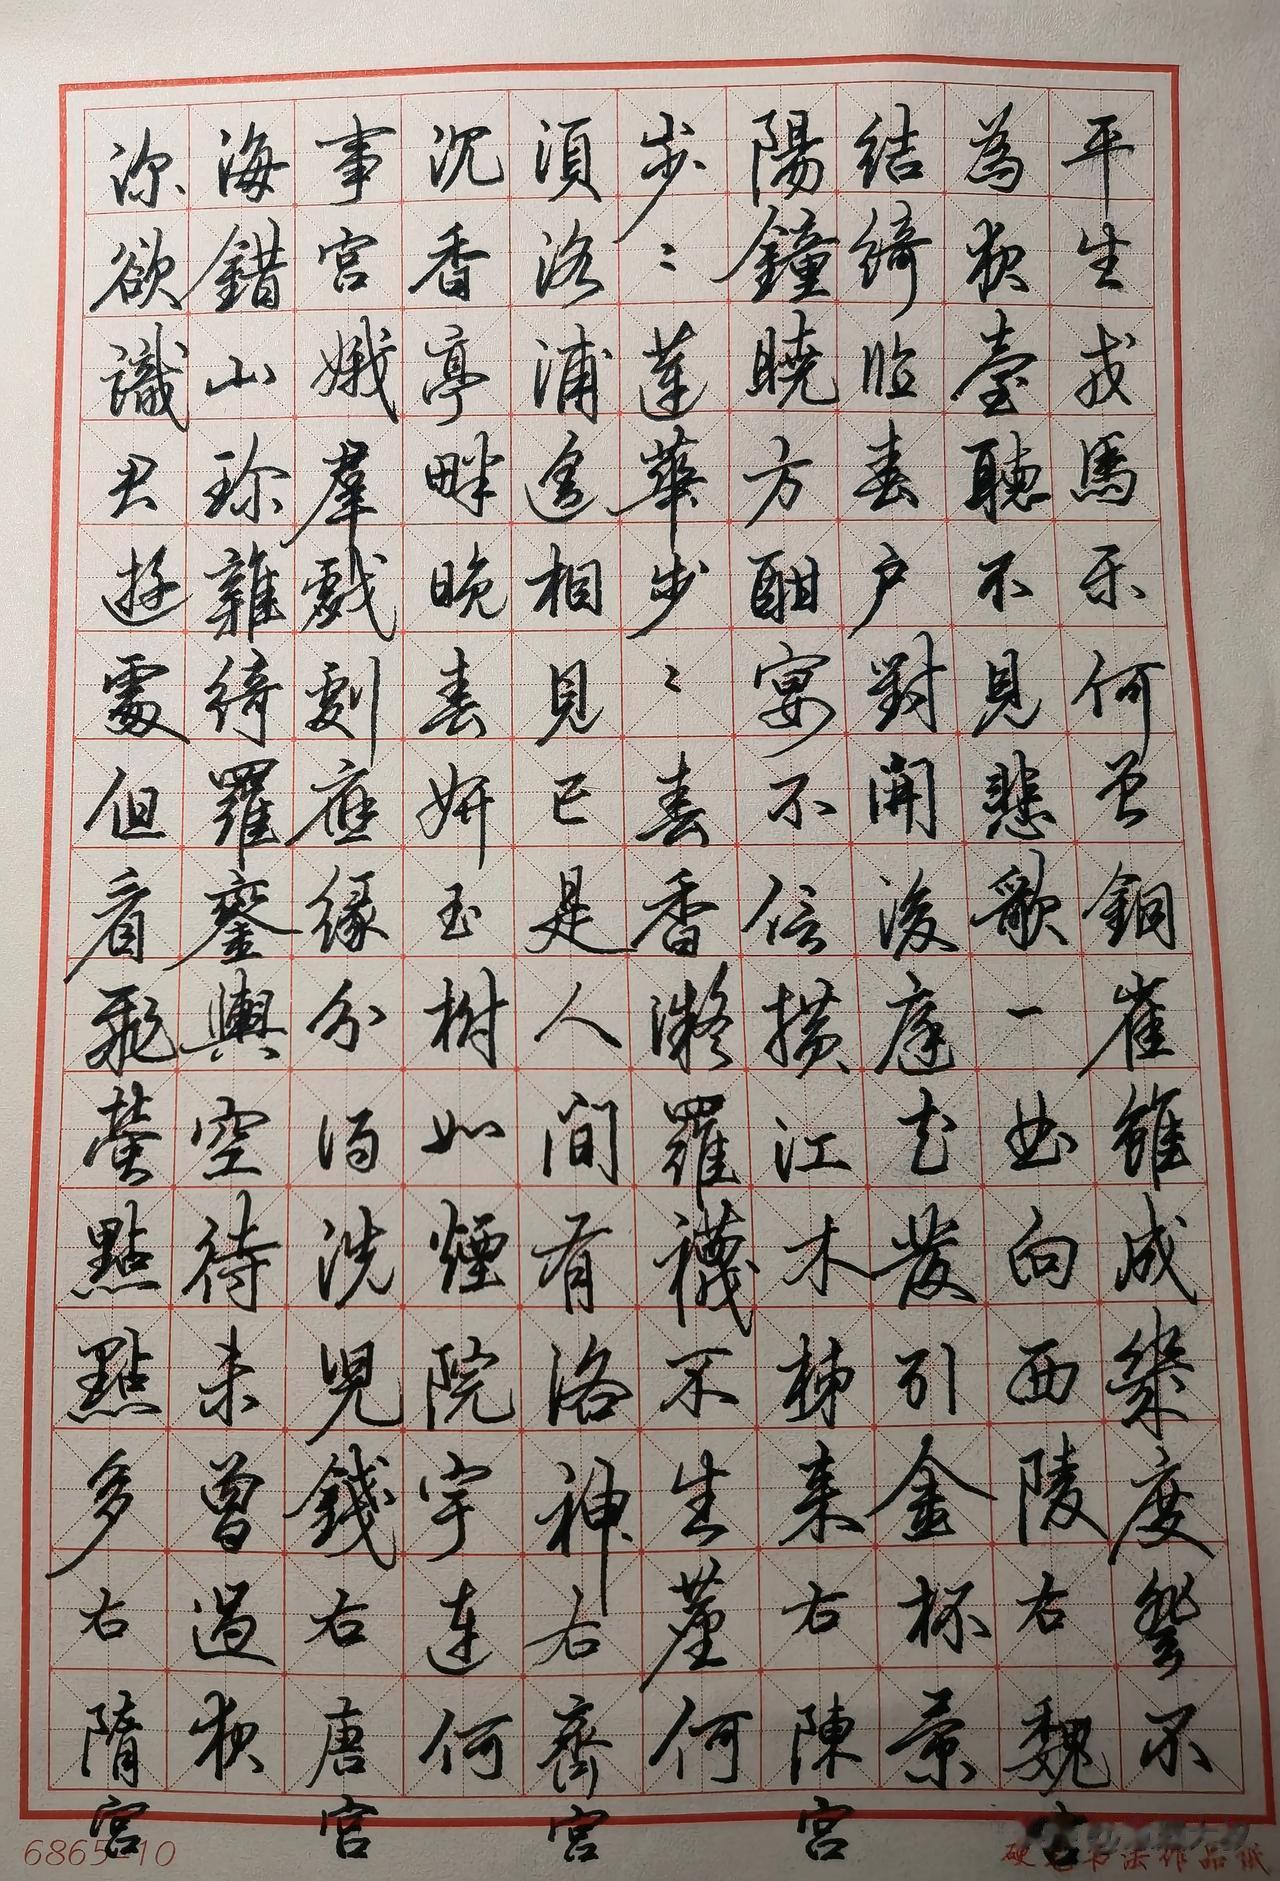 平生戎馬乐何曾銅雀雖成幾度登不
為夜臺聽不見悲歌一曲向西陵右魏宫
結綺临春户對開後庭花發引金杯景
陽鐘曉方酣宴不信横江木柹来右陳宫
步〻蓮華步〻春香凝羅襪不生塵何
須洛浦遥相見已是人間有洛神右齊宫
沉香亭畔晚春妍玉樹如煙院宇連何
事宫娥羣戲劇應緣分得洗兒錢右唐宫
海錯山珍雜綺羅鑾輿空待未曾過夜
深欲識君遊處但看飛螢點點多右隋宫
6865-10
硬笔书法作品纸